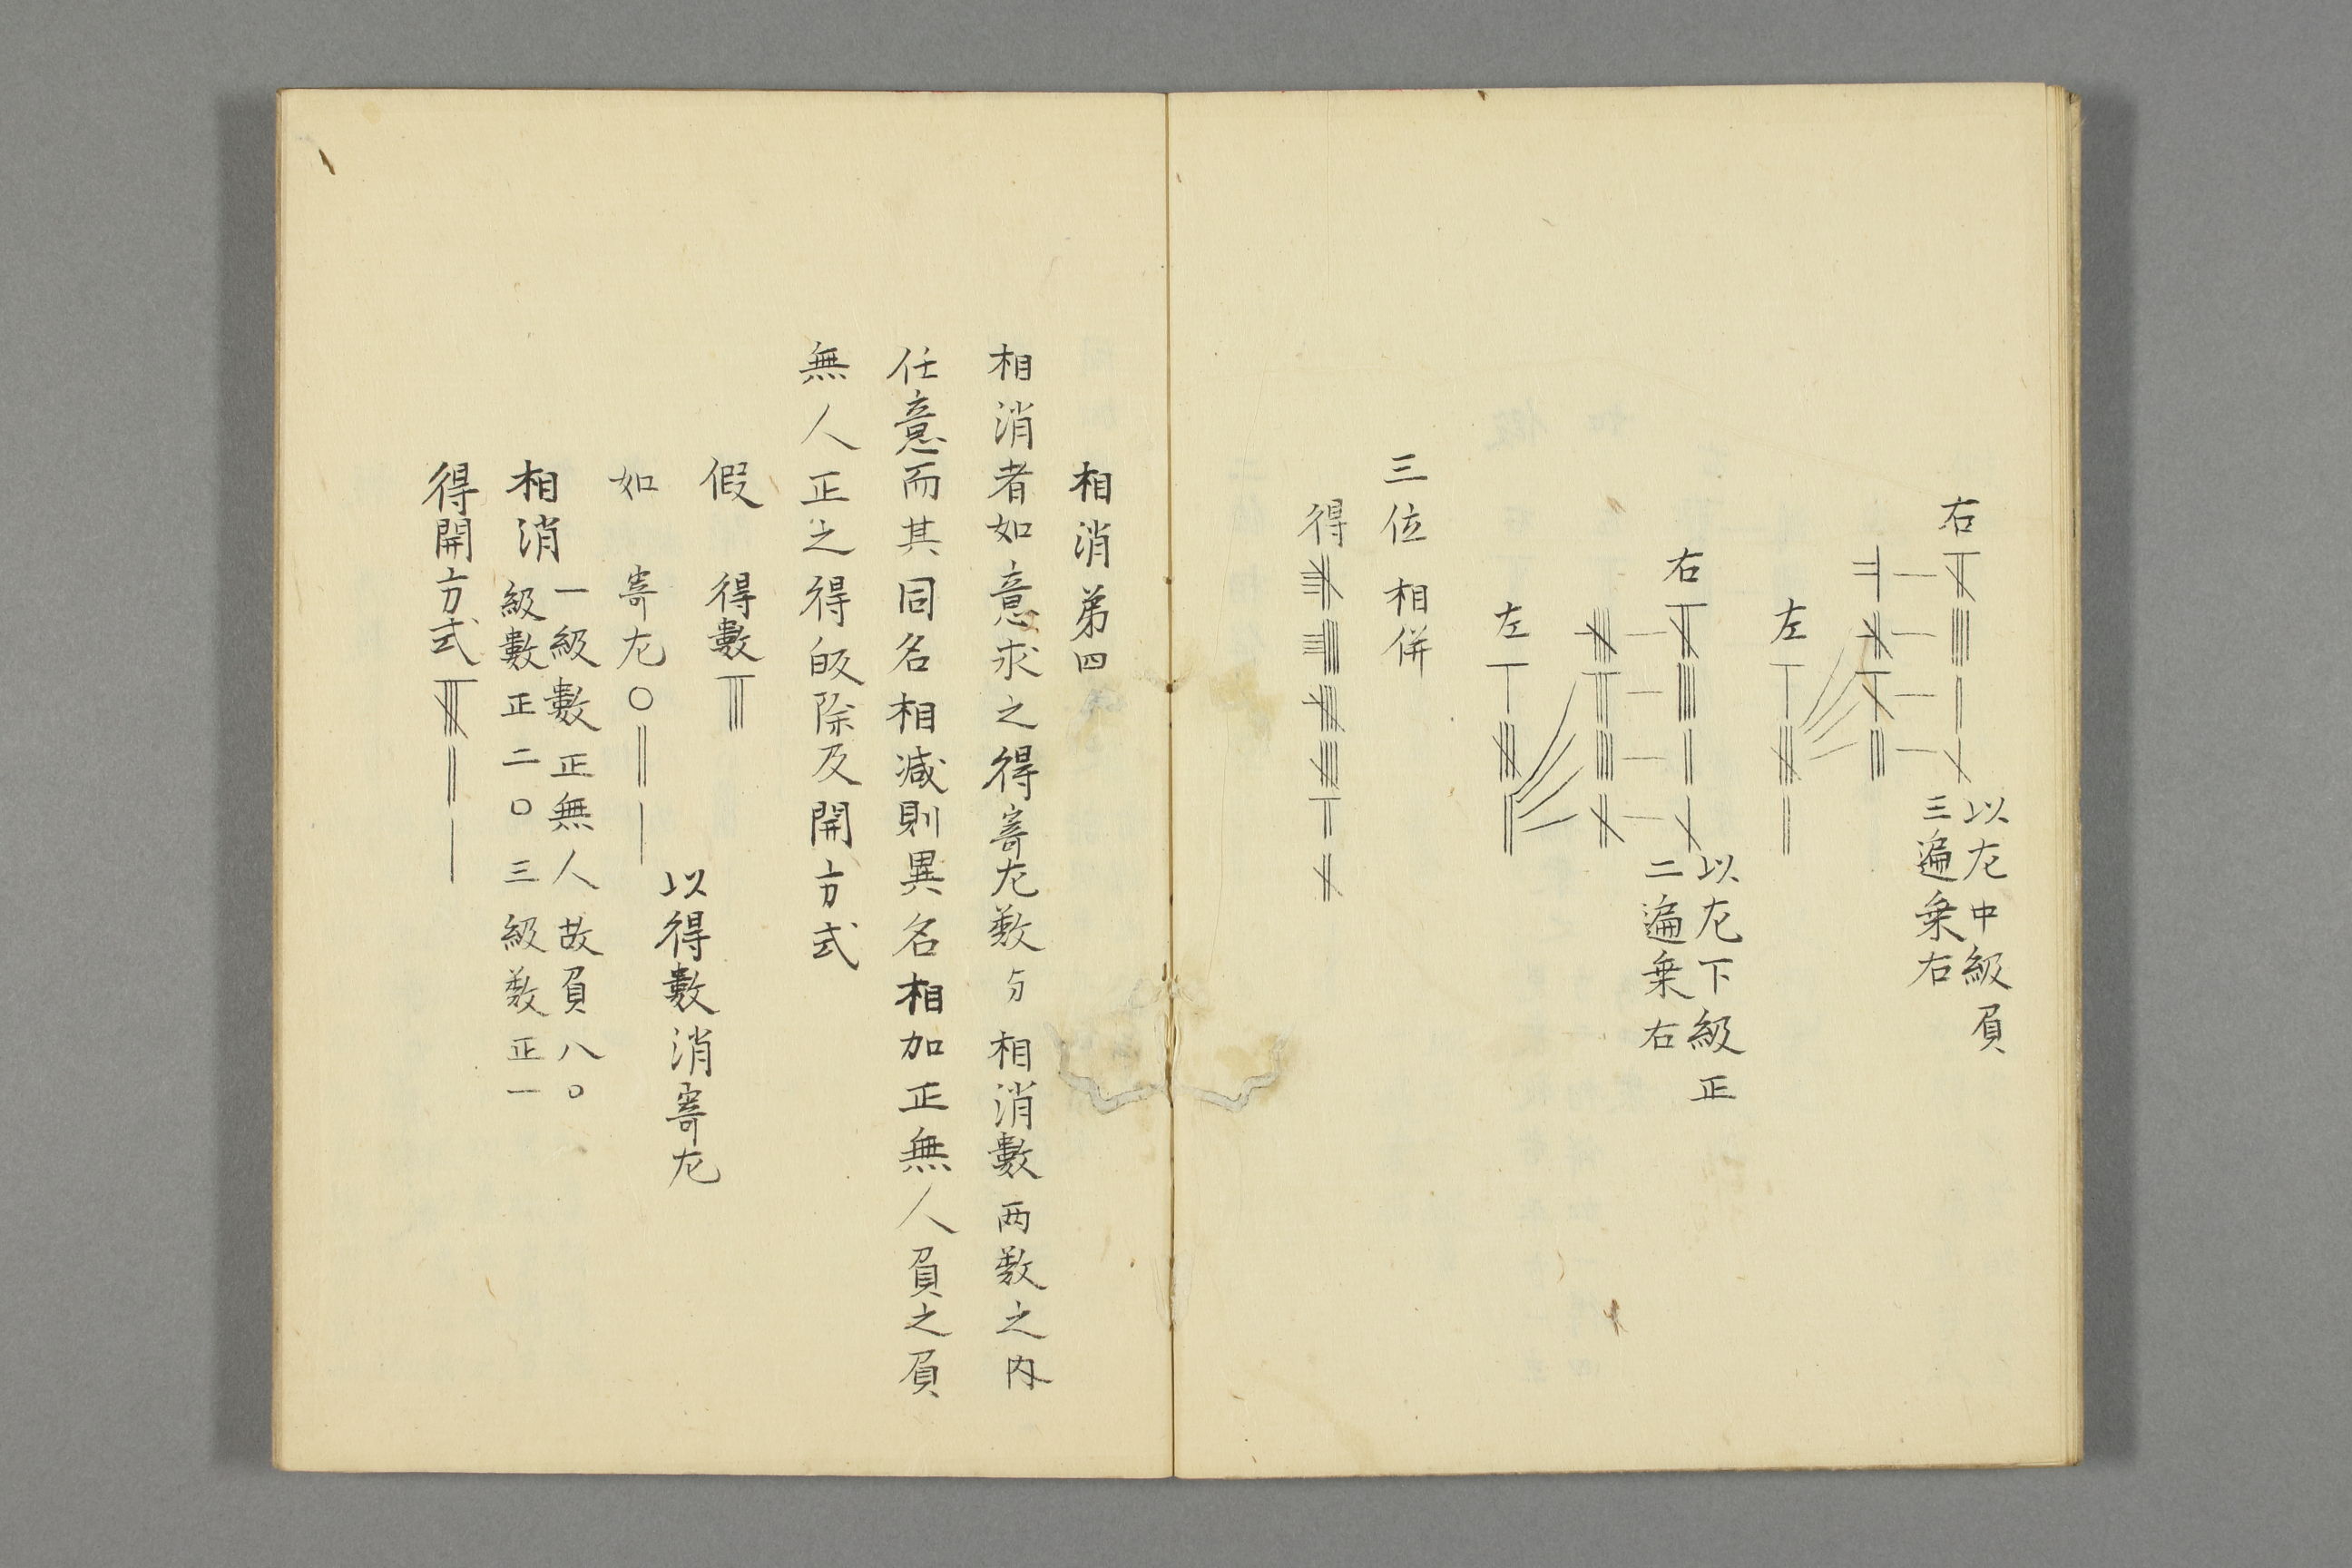 右
以左中級負
三遍乗右
左
右
以左下級正
二遍乗右
左
三位相併
得
相消弟四
相消者如意求之得寄左数与相消數両数之内
任意而其同名相减則異名相加正無人負之負
無人正之得皈除及開方式
假 得數
以得數消寄左
如 寄左〇
相消
一級數正無人故負八〇
級數正二〇三級数正一
得開方式